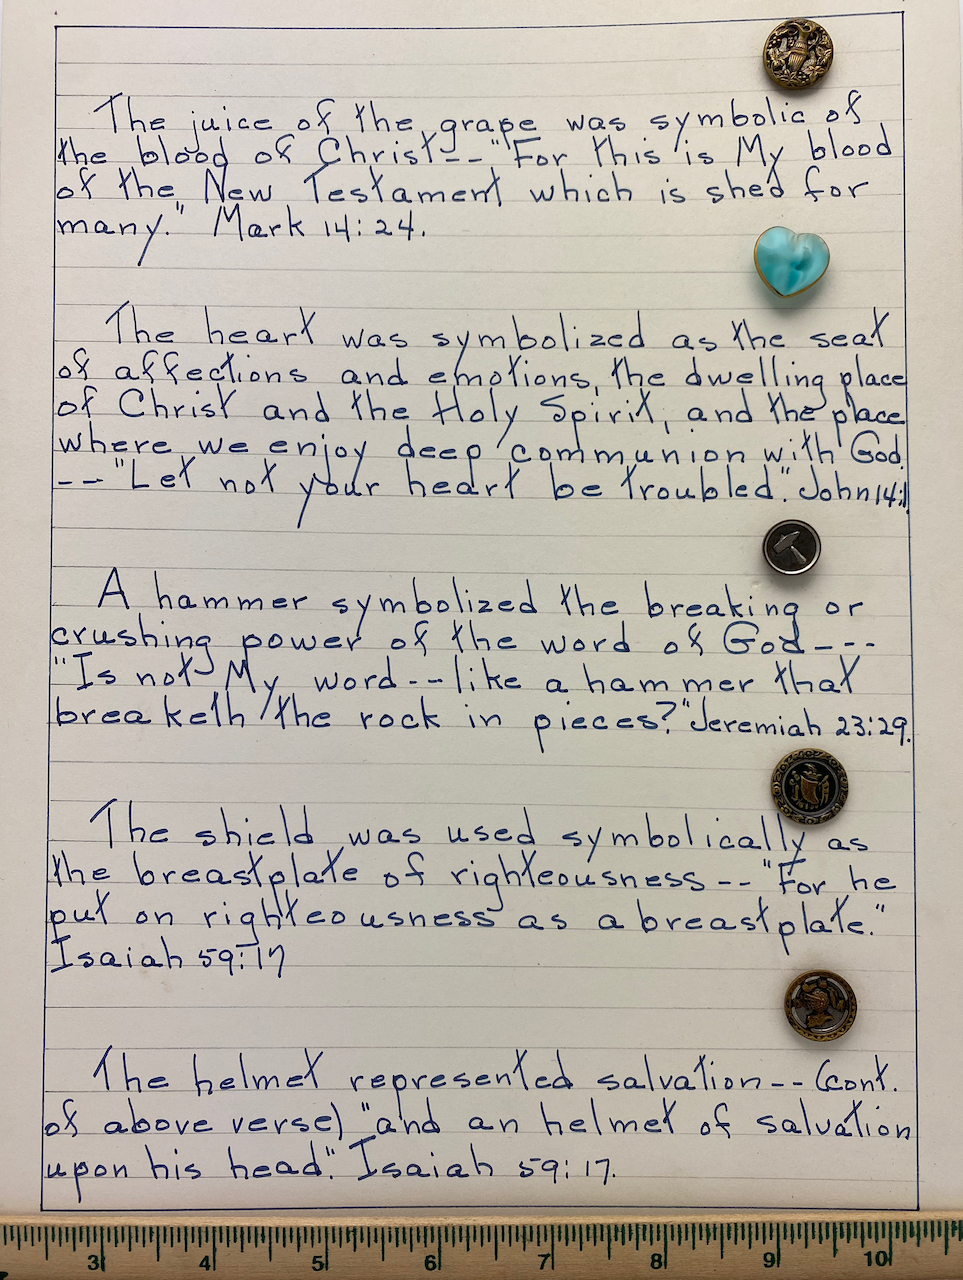 The juice of the grape was symbolic of
the blood of Christ--"For this is My blood
of the New Testament which is shed for
many." Mark 14:24.
The heart was symbolized as the seat
of affections and emotions, the dwelling place
of Christ and the Holy Spirit, and the place
where we enjoy deep communion with God.
--"Let not your heart be troubled." John 14:1
A hammer symbolized the breaking or
crushing power of the word of God---
"Is not My word--like a hammer that
breaketh the rock in pieces?" Jeremiah 23:29.
The shield was used symbolically as
the breastplate of righteousness--"For he
put on righteousness as a breastplate."
Isaiah 59:17
The helmet represented salvation--(cont.
of above verse) "and an helmet of salvation
upon his head." Isaiah 59:17.
3 4 5 6 7 8 9 10